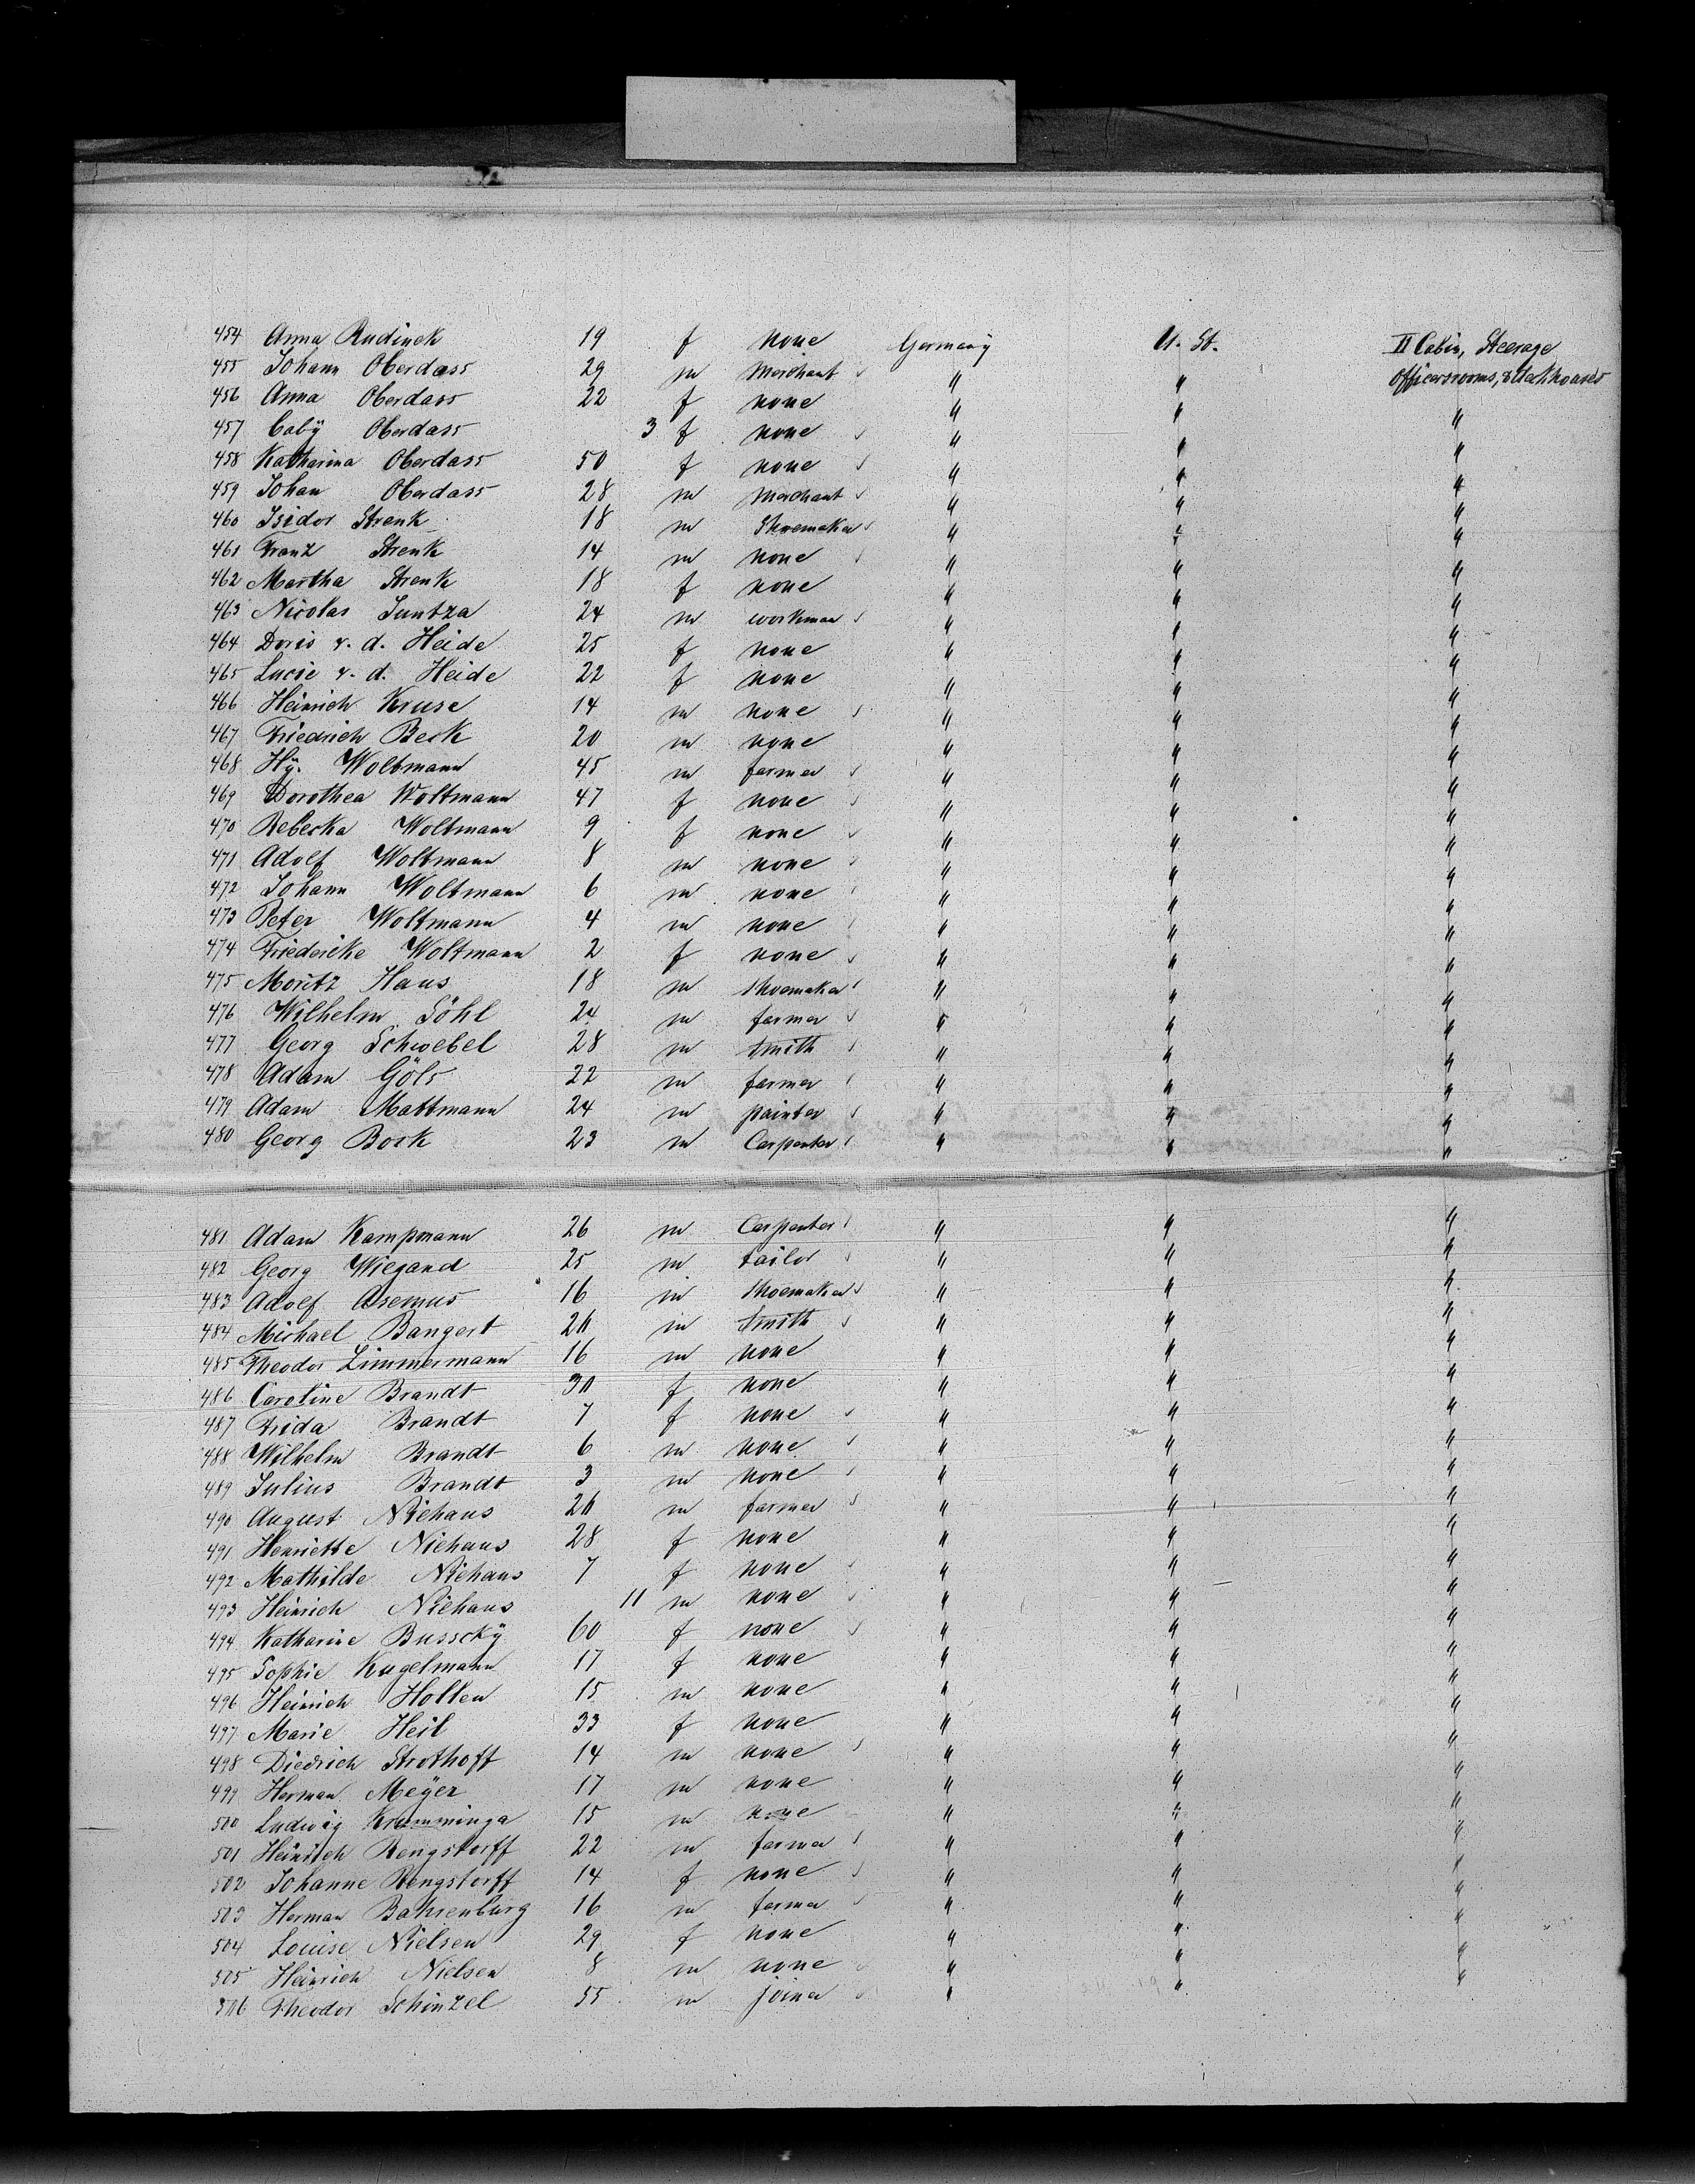 454 Anna Rudinek 19 f none Germany U. St. II Cabin, Steerage
455 Johann Oberdass 29 m Merchant " " Officersrooms, &
456 Anna Oberdass 22 f none " " "
457 Caby Oberdass 3 f none " " "
458 Katharina Oberdass 50 f none " " "
459 Johan Oberdass 28 m Merchant " " "
460 Isidor Strenk 18 m Shoemaker " " "
461 Franz Strenk 14 m none " " "
462 Martha Strenk 18 f none " " "
463 Nicolas Suntza 24 m workman " " "
464 Doris v. d. Heide 25 f none " " "
465 Lucie v. d. Heide 22 f none " " "
466 Heinrich Kruse 14 m none " " "
467 Friedrich Beck 20 m none " " "
468 Hÿ. Woltmann 45 m farmer " " "
469 Dorothea Woltmann 47 f none " " "
470 Rebecka Woltmann 9 f none " " "
471 Adolf Woltmann 8 m none " " "
472 Johann Woltmann 6 m none " " "
473 Peter Woltmann 4 m none " " "
474 Friedericke Woltmann 2 f none " " "
475 Moritz Haus 18 m shoemaker " " "
476 Wilhelm Söhl 24 m farmer " " "
477 Georg Schwebel 28 m smith " " "
478 Adam Göls 22 m farmer " " "
479 Adam Mattmann 24 m painter " " "
480 Georg Bock 23 m Carpenter " " "
481 Adam Kampmann 26 m Carpenter " " "
482 Georg Wiegand 25 m tailor " " "
483 Adolf Asemus 16 m shoemaker " " "
484 Michael Bangert 20 m smith " " "
485 Theodor Zimmermann 16 m none " " "
486 Caroline Brandt 30 f none " " "
487 Frida Brandt 7 f none " " "
488 Wilhelm Brandt 6 m none " " "
489 Julius Brandt 3 m none " " "
490 August Niehaus 20 m farmer " " "
491 Henriette Niehaus 28 f none " " "
492 Mathilde Niehaus 7 f none " " "
493 Heinrich Niehaus 11 m none " " "
494 Katharine Busscky 60 f none " " "
495 Sophie Kugelmann 17 f none " " "
496 Heinrich Holten 15 m none " " "
497 Marie Heil 33 f none " " "
498 Diedrich Strothoff 14 m none " " "
499 Herman Meÿer 17 m none " " "
500 Ludwig Kramminga 15 m none " " "
501 Heinrich Rengstorff 22 m farmer " " "
502 Johanne Rengstorff 14 f none " " "
503 Herman Bahrenburg 16 m farmer " " "
504 Louise Nielsen 29 f none " " "
505 Heinrich Nielsen 8 m none " " "
506 Theodor Schinzel 55 m joiner " " "